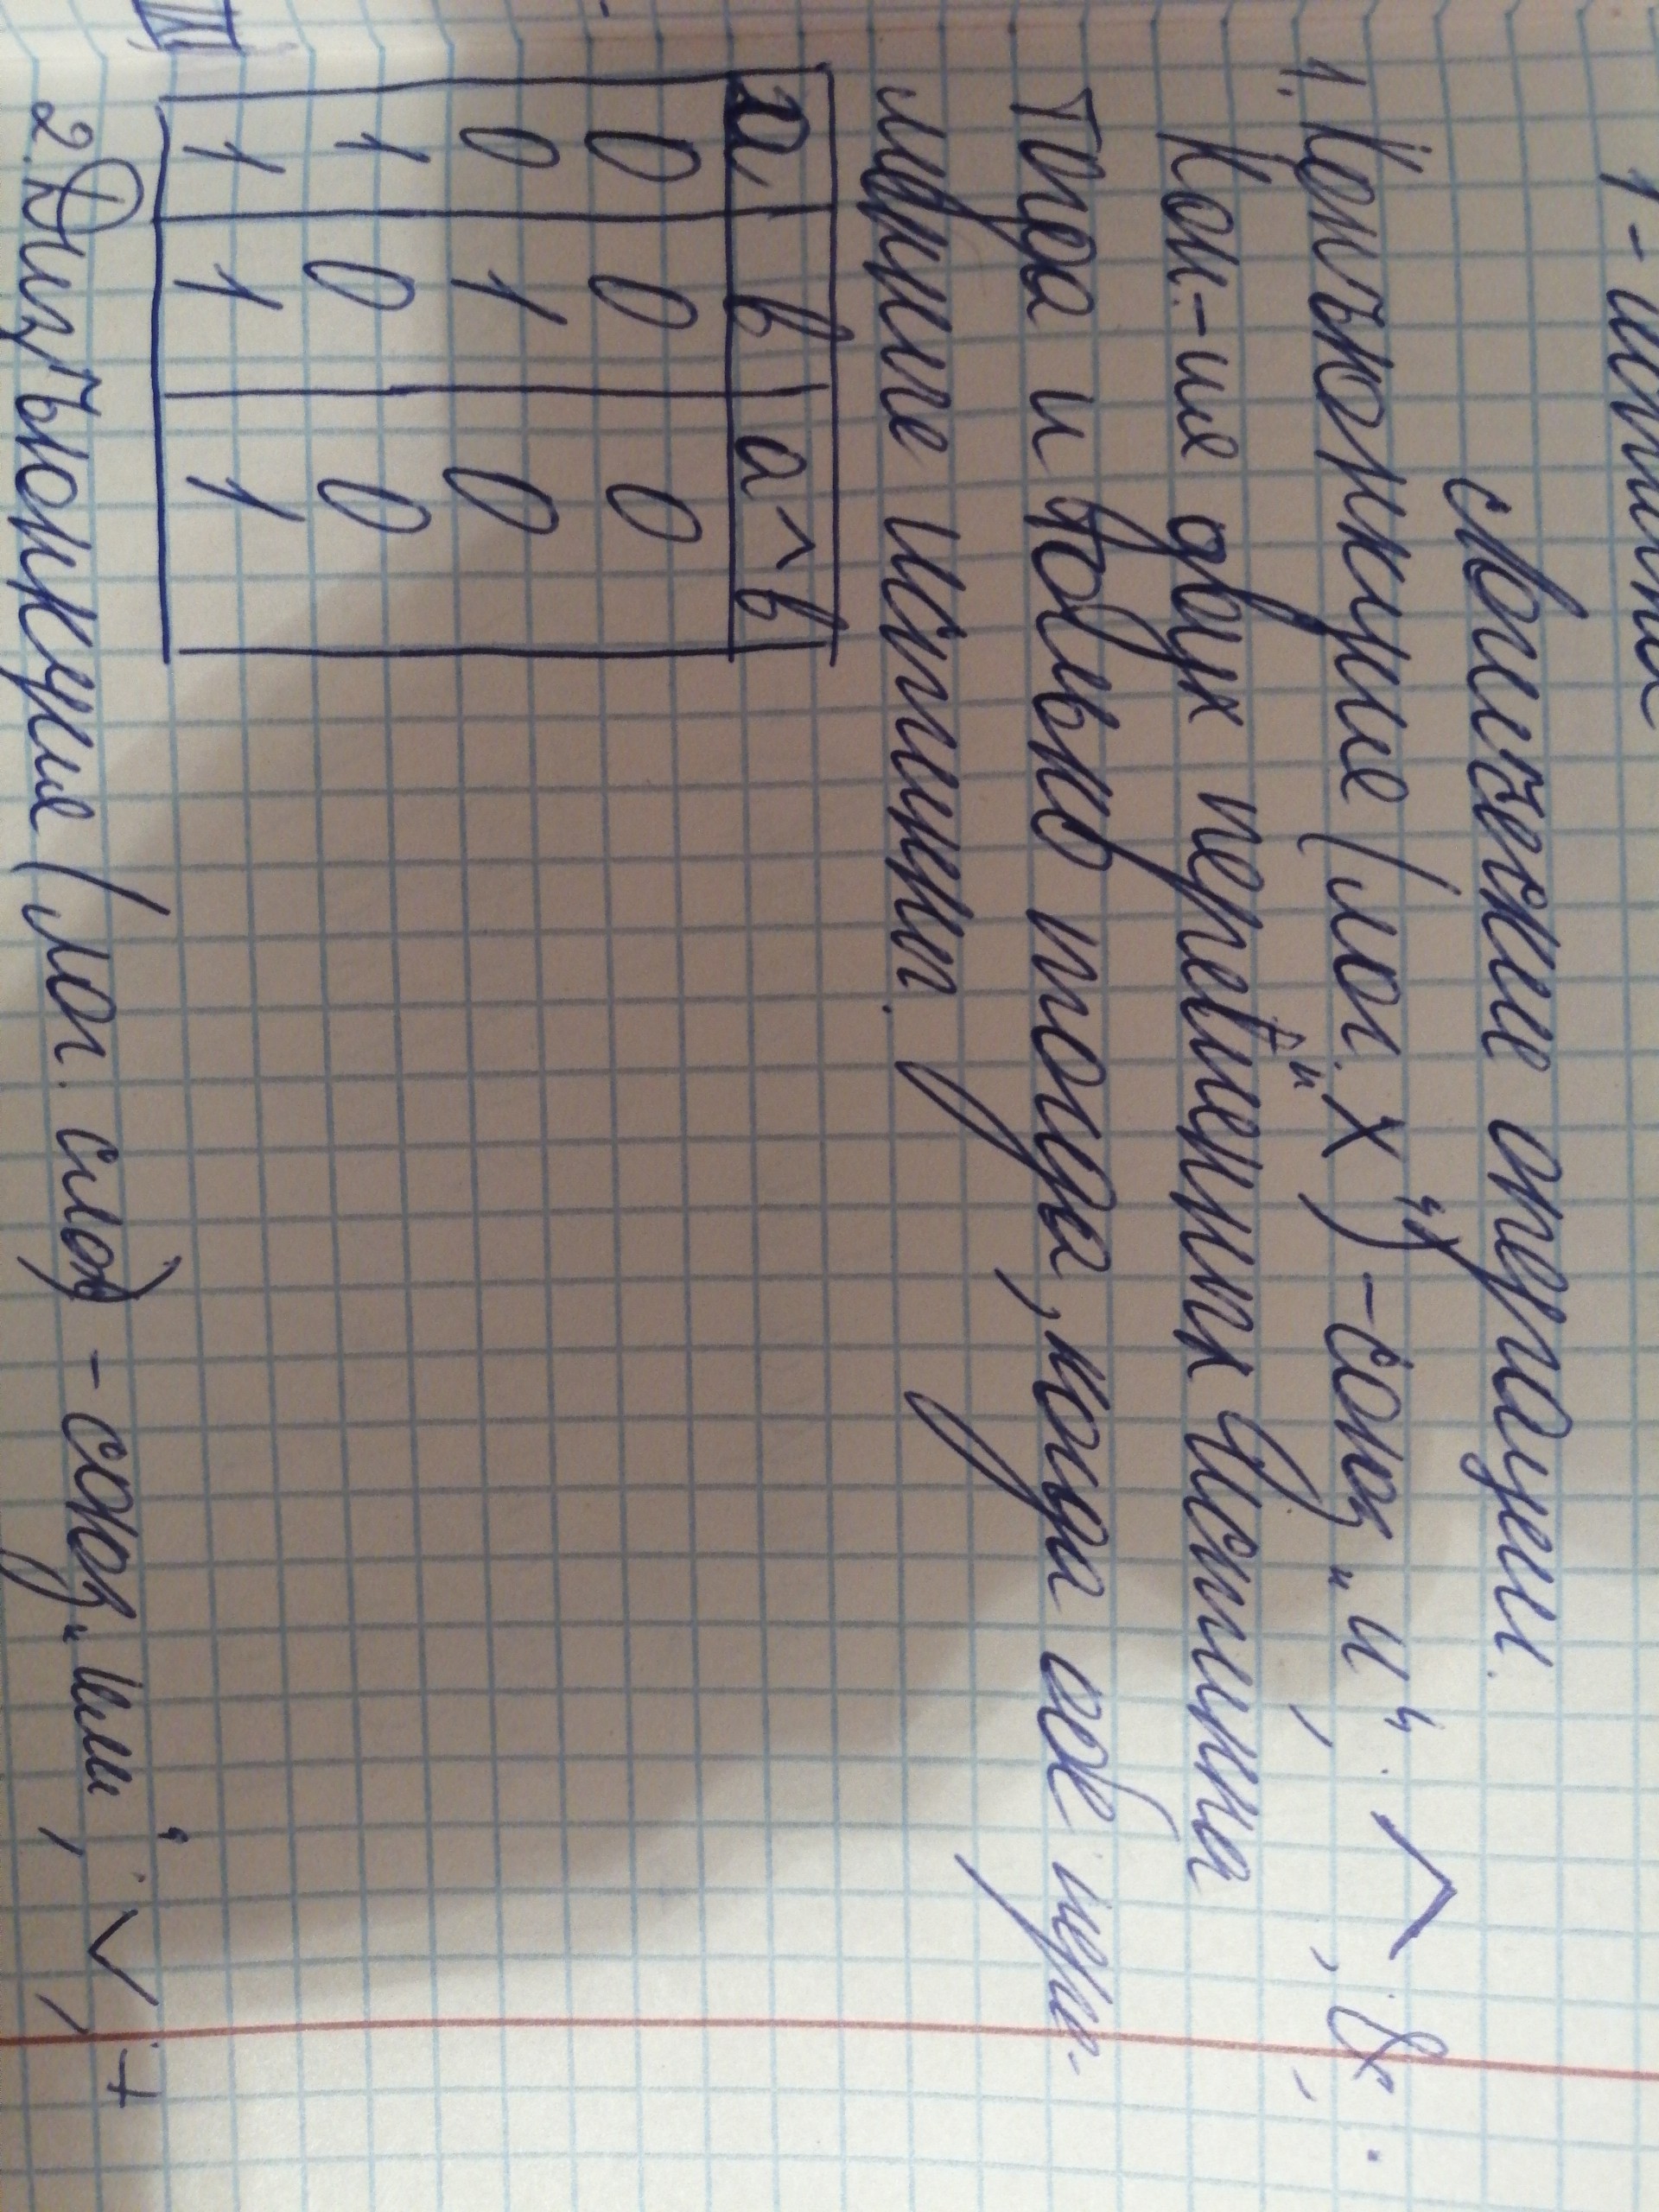 1 - истина
Логические операции.
1. Конъюнкция (лог. „х“) - союз „и“, ∧, &, ·
Кон-ия двух переменных истинна
тогда и только тогда, когда обе пере-
менные истинны.
а в а∧в
0 0 0
0 1 0
1 0 0
1 1 1
2. Дизъюнкция (лог. слож) - союз „или“, ∨, +